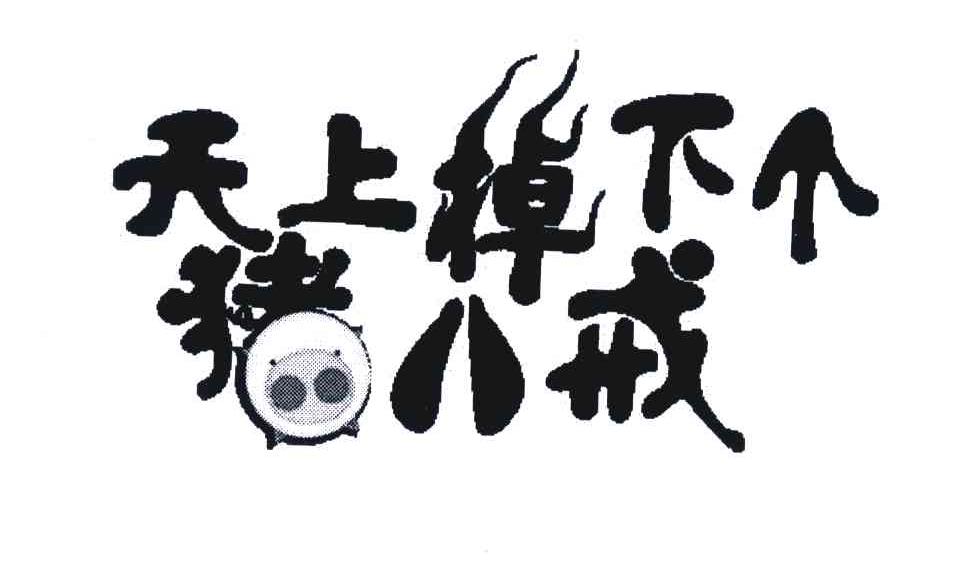 天上掉下个
猪八戒